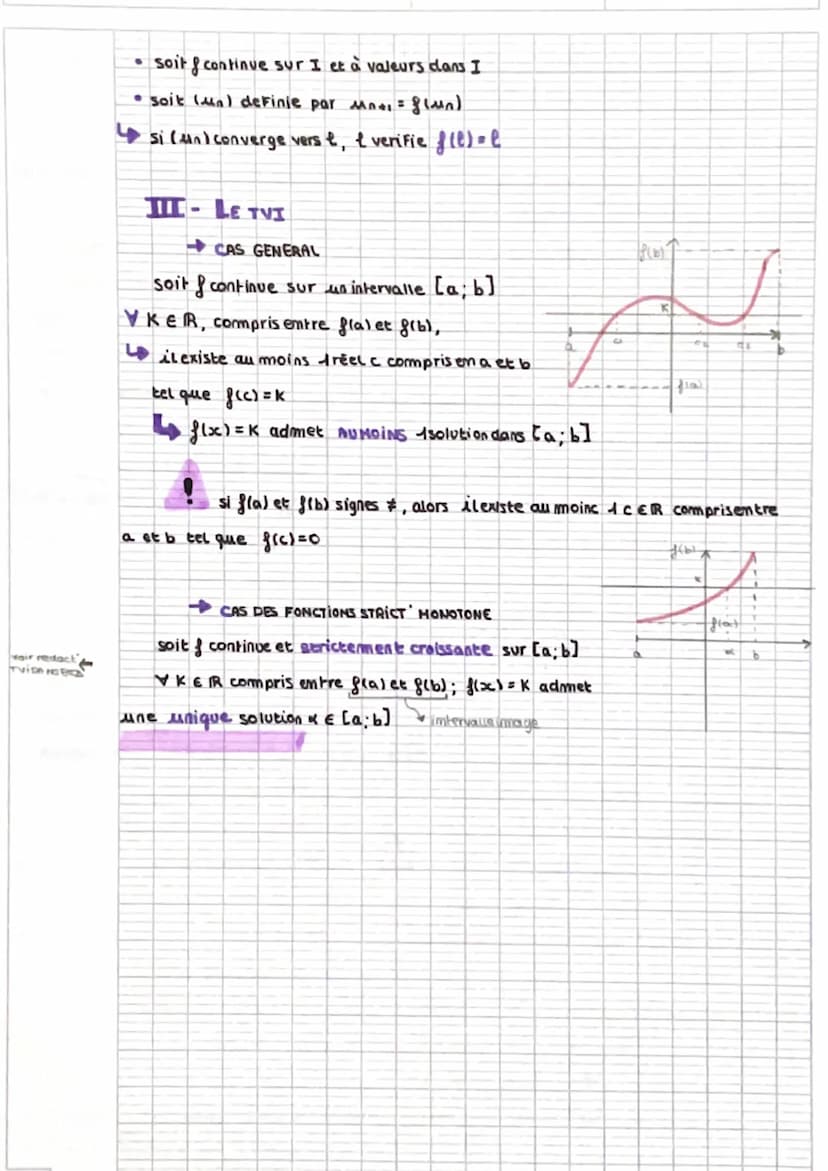 • soit f continue sur I et à valeurs dans I
• soit (un) definie par un+1 = f(un)
↳ si (un) converge vers ℓ, ℓ verifie f(ℓ) = ℓ
III - LE TVI
→ CAS GENERAL
f(b)
soit f continue sur un intervalle [a; b]
∀ K ∈ ℝ, compris entre f(a) et f(b),
K
↳ il existe au moins 1 réel c compris en a et b
a
b
tel que f(c) = K
f(a)
↳ f(x) = K admet AU MOINS 1 solution dans [a; b]
! si f(a) et f(b) signes ≠, alors il existe au moinc 1 c ∈ ℝ compris entre
a et b tel que f(c)=0
f(b)
K
→ CAS DES FONCTIONS STRICT' MONOTONE
f(a)
soit f continue et strictement croissante sur [a; b]
a
α
b
voir redact°
∀ K ∈ ℝ compris entre f(a) et f(b); f(x) = K admet
une unique solution α ∈ [a; b]
intervalle image